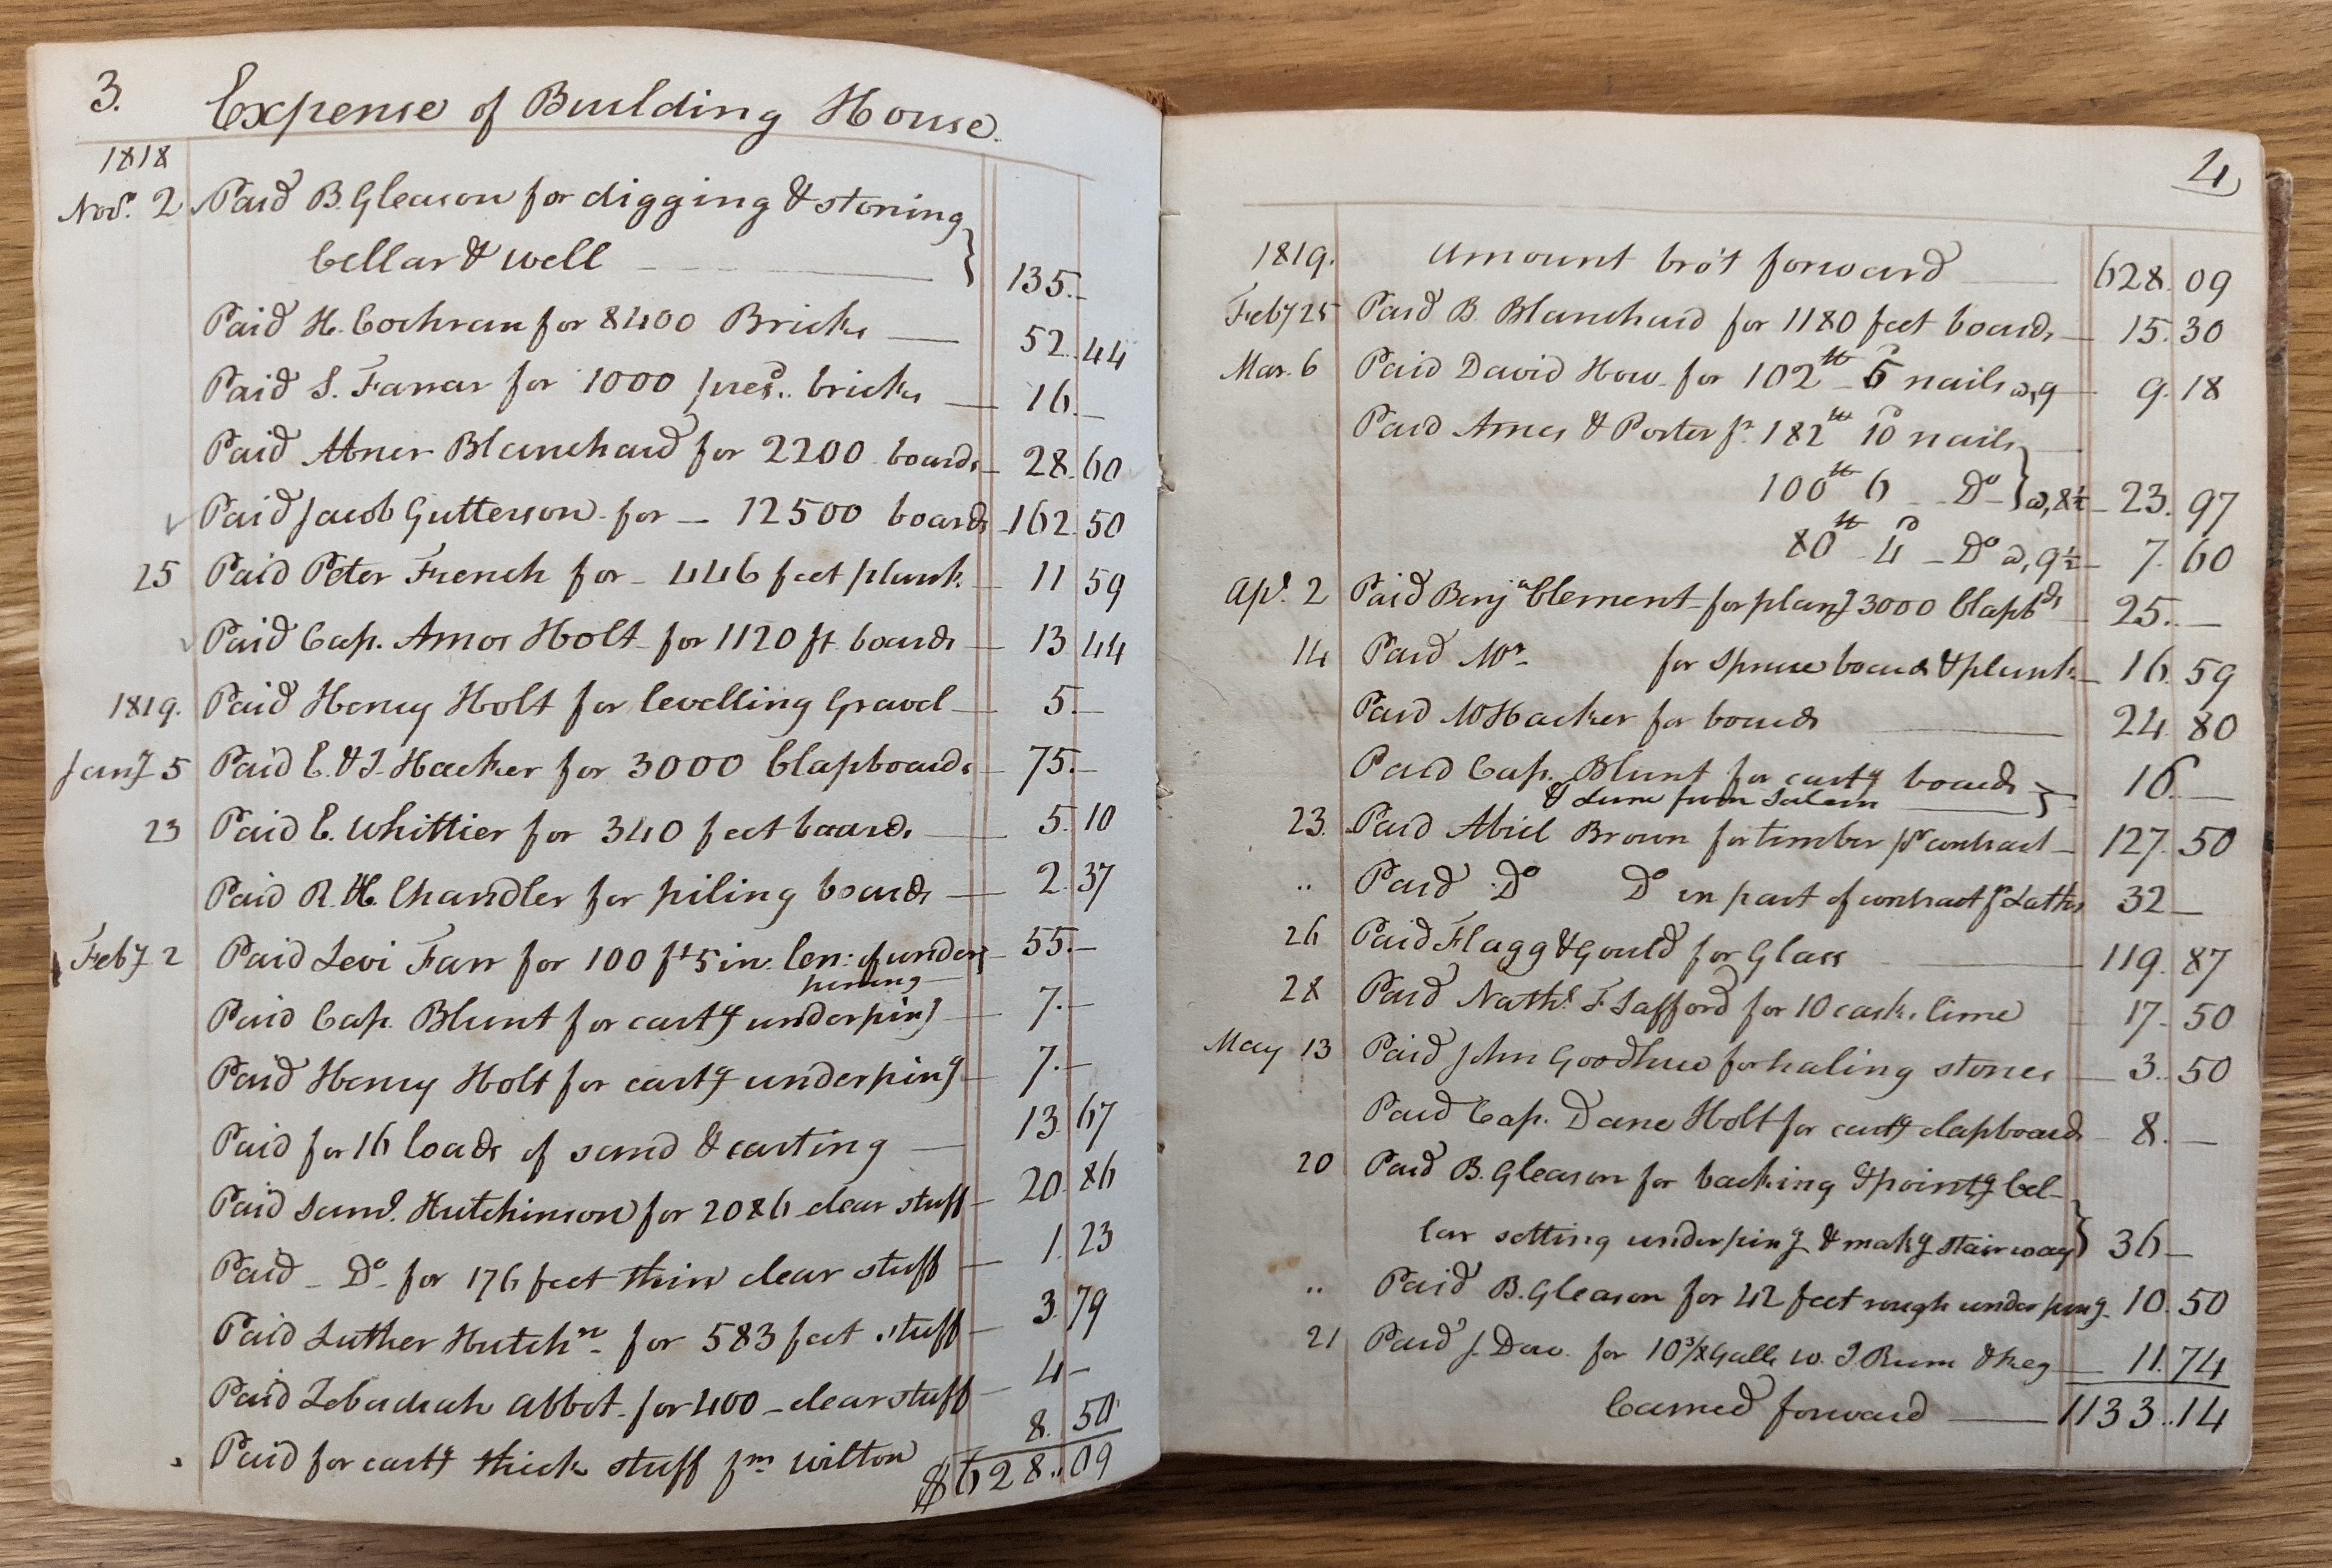 3. Expense of Building House.
1818
Nov.r 2 Paid B. Gleason for digging & stoning
Cellar & well 135.–
Paid H. Cochran for 8400 Bricks 52.44
Paid S. Farrar for 1000 presd. bricks 16.–
Paid Abner Blanchard for 2200 boards 28.60
Paid Jacob Gutterson for 12500 boards 162.50
25 Paid Peter French for 446 feet plank 11 59
Paid Cap. Amos Holt for 1120 ft boards 13 44
1819. Paid Henry Holt for levelling Gravel 5.–
Jany 5 Paid E. & I. Hacker for 3000 Clapboards 75.–
23 Paid E. Whittier for 340 feet boards 5.10
Paid R. H. Chandler for piling boards 2.37
Feby 2 Paid Levi Farr for 100 ft 5 in. len: of under 55.–
pinning
Paid Cap. Blunt for cartg underping 7.–
Paid Henry Holt for cartg underping 7.–
Paid for 16 loads of sand & carting 13.67
Paid Saml. Hutchinson for 2086 clear stuff 20.86
Paid Do for 176 feet thin clear stuff 1.23
Paid Luther Hutchn for 583 feet stuff 3.79
Paid Zebadiah Abbot for 400 clear stuff 4–
Paid for cartg thick stuff fm Wilton 8.50
$628..09
4
1819. Amount bro't forward 628.09
Feby 25 Paid B. Blanchard for 1180 feet boards 15.30
Mar. 6 Paid David How for 102 lb 6d nails @ 9 9.18
Paid Ames & Porter fr. 182 lb 10d nails
100 lb 6 Do @ 8½ 23.97
80 lb 4d Do @ 9½ 7.60
Apl. 2 Paid Benja Clement for plang 3000 Clapbds 25.–
14 Paid Mr for spruce boards & plank 16.59
Paid W Hacker for boards 24.80
Paid Cap. Blunt for cartg boards 16.–
& Lime from Salem
23. Paid Abiel Brown for timber pr contract 127.50
.. Paid Do Do in part of contract fr Laths 32–
26 Paid Flagg & Gould for Glass 119.87
28 Paid Nathl. F. Safford for 10 casks lime 17.50
May 13 Paid John Goodhue for haling stones 3..50
Paid Cap. Dane Holt for cartg clapboards 8.–
20 Paid B. Gleason for backing & pointg Cel-
lar setting underping & makg stairway 36–
.. Paid B. Gleason for 42 feet rough underping 10.50
21 Paid J. Dav. for 10⅜ Galls W. I. Rum & keg 11.74
Carried forward 1133..14